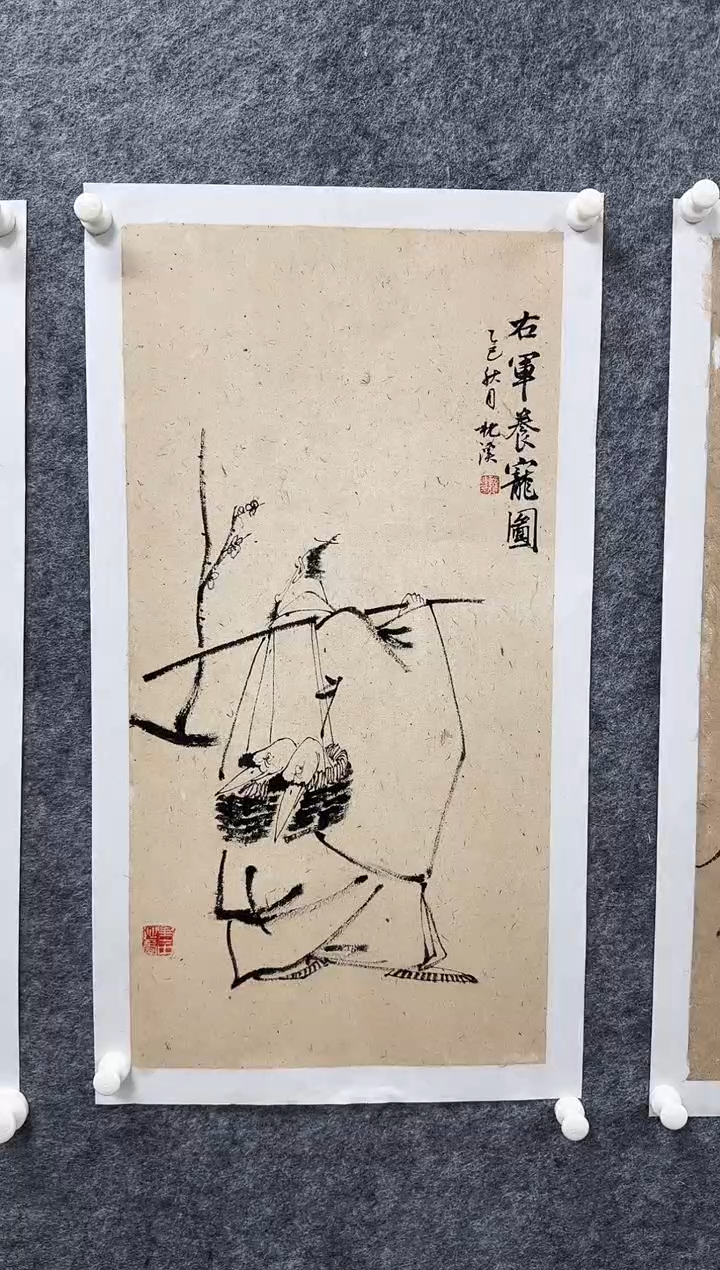 右軍養寵圖
乙巳秋月